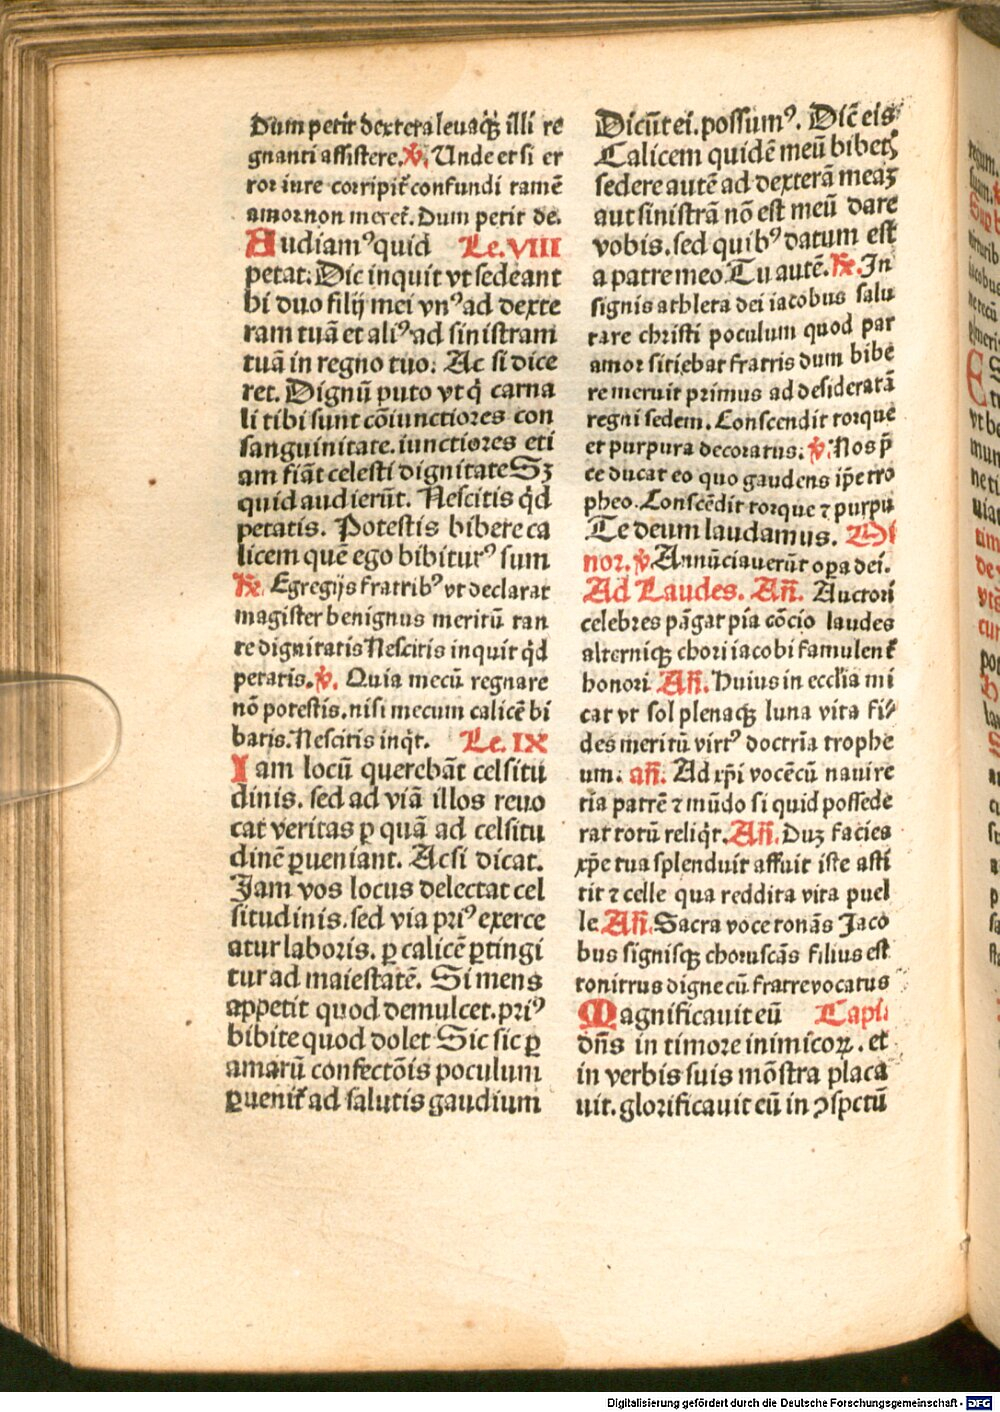 Dum petit dextera leuaqꝫ illi re
gnanti assistere. ℣. Unde et si er
ror iure corripit᷑ confundi tamē
amor non meret᷑. Dum petit de.
Audiamꝰ quid Le. VIII
petat. Dic inquit vt sedeant
hi duo filij mei vnꝰ ad dexte
ram tuā et aliꝰ ad sinistram
tuā in regno tuo. Ac si dice
ret. Dignū puto vt q̇ carna
li tibi sunt cōiunctiores con
sanguinitate. iunctiores eti
am fiāt celesti dignitate Sꝫ
quid audierūt. Nescitis q̇d
petatis. Potestis bibere ca
licem quē ego bibiturꝰ sum
℟. Egregijs fratribꝰ vt declarat
magister benignus meritū tan
te dignitatis Nescitis inquit q̇d
petatis. ℣. Quia mecū regnare
nō potestis. nisi mecum calicē bi
batis. Nescitis inq̇t. Le. IX
Iam locū querebāt celsitu
dinis. sed ad viā illos reuo
cat veritas ꝑ quā ad celsitu
dinē ꝑueniant. Acsi dicat.
Jam vos locus delectat cel
situdinis. sed via priꝰ exerce
atur laboris. ꝑ calicē ꝑtingi
tur ad maiestatē. Si mens
appetit quod demulcet. priꝰ
bibite quod dolet Sic sic ꝑ
amarū confectōis poculum
ꝑuenit᷑ ad salutis gaudium
Dicūt ei. possumꝰ. Dic̄ eis
Calicem quidē meū bibetꝭ
sedere autē ad dexterā meaꝫ
aut sinistrā nō est meū dare
vobis. sed quibꝰ datum est
a patre meo Tu autē. ℟. In
signis athleta dei iacobus salu
tare christi poculum quod par
amor sitiebat fratris dum bibe
re meruit primus ad desideratā
regni sedem. Conscendit torque
et purpura decoratus. ℣. Nos p̄
ce ducat eo quo gaudens ip̄e tro
pheo. Conscēdit torque ⁊ purpu
Te deum laudamus. Mi
nor. ℣. Annūciauerūt opa dei.
Ad Laudes. Añ. Auctori
celebres pāgat pia cōcio laudes
alterniqꝫ chori iacobi famulent᷑
honori Añ. Huius in eccl̄ia mi
cat vt sol plenaqꝫ luna vita fi
des meritū virtꝰ doctrīa trophe
um. añ. Ad xp̄i vocē cū naui re
tia patrē ⁊ mūdo si quid possede
rat totū reliq̇t. Añ. Duꝫ facies
xp̄e tua splenduit affuit iste asti
tit ⁊ celle qua reddita vita puel
le Añ. Sacra voce tonās Jaco
bus signisqꝫ choruscās filius est
tonitrus digne cū fratre vocatus
Magnificauit eū Capl.
dn̄s in timore inimicoꝝ. et
in verbis suis mōstra placa
uit. glorificauit eū in ꝯspctū
Digitalisierung gefördert durch die Deutsche Forschungsgemeinschaft - DFG